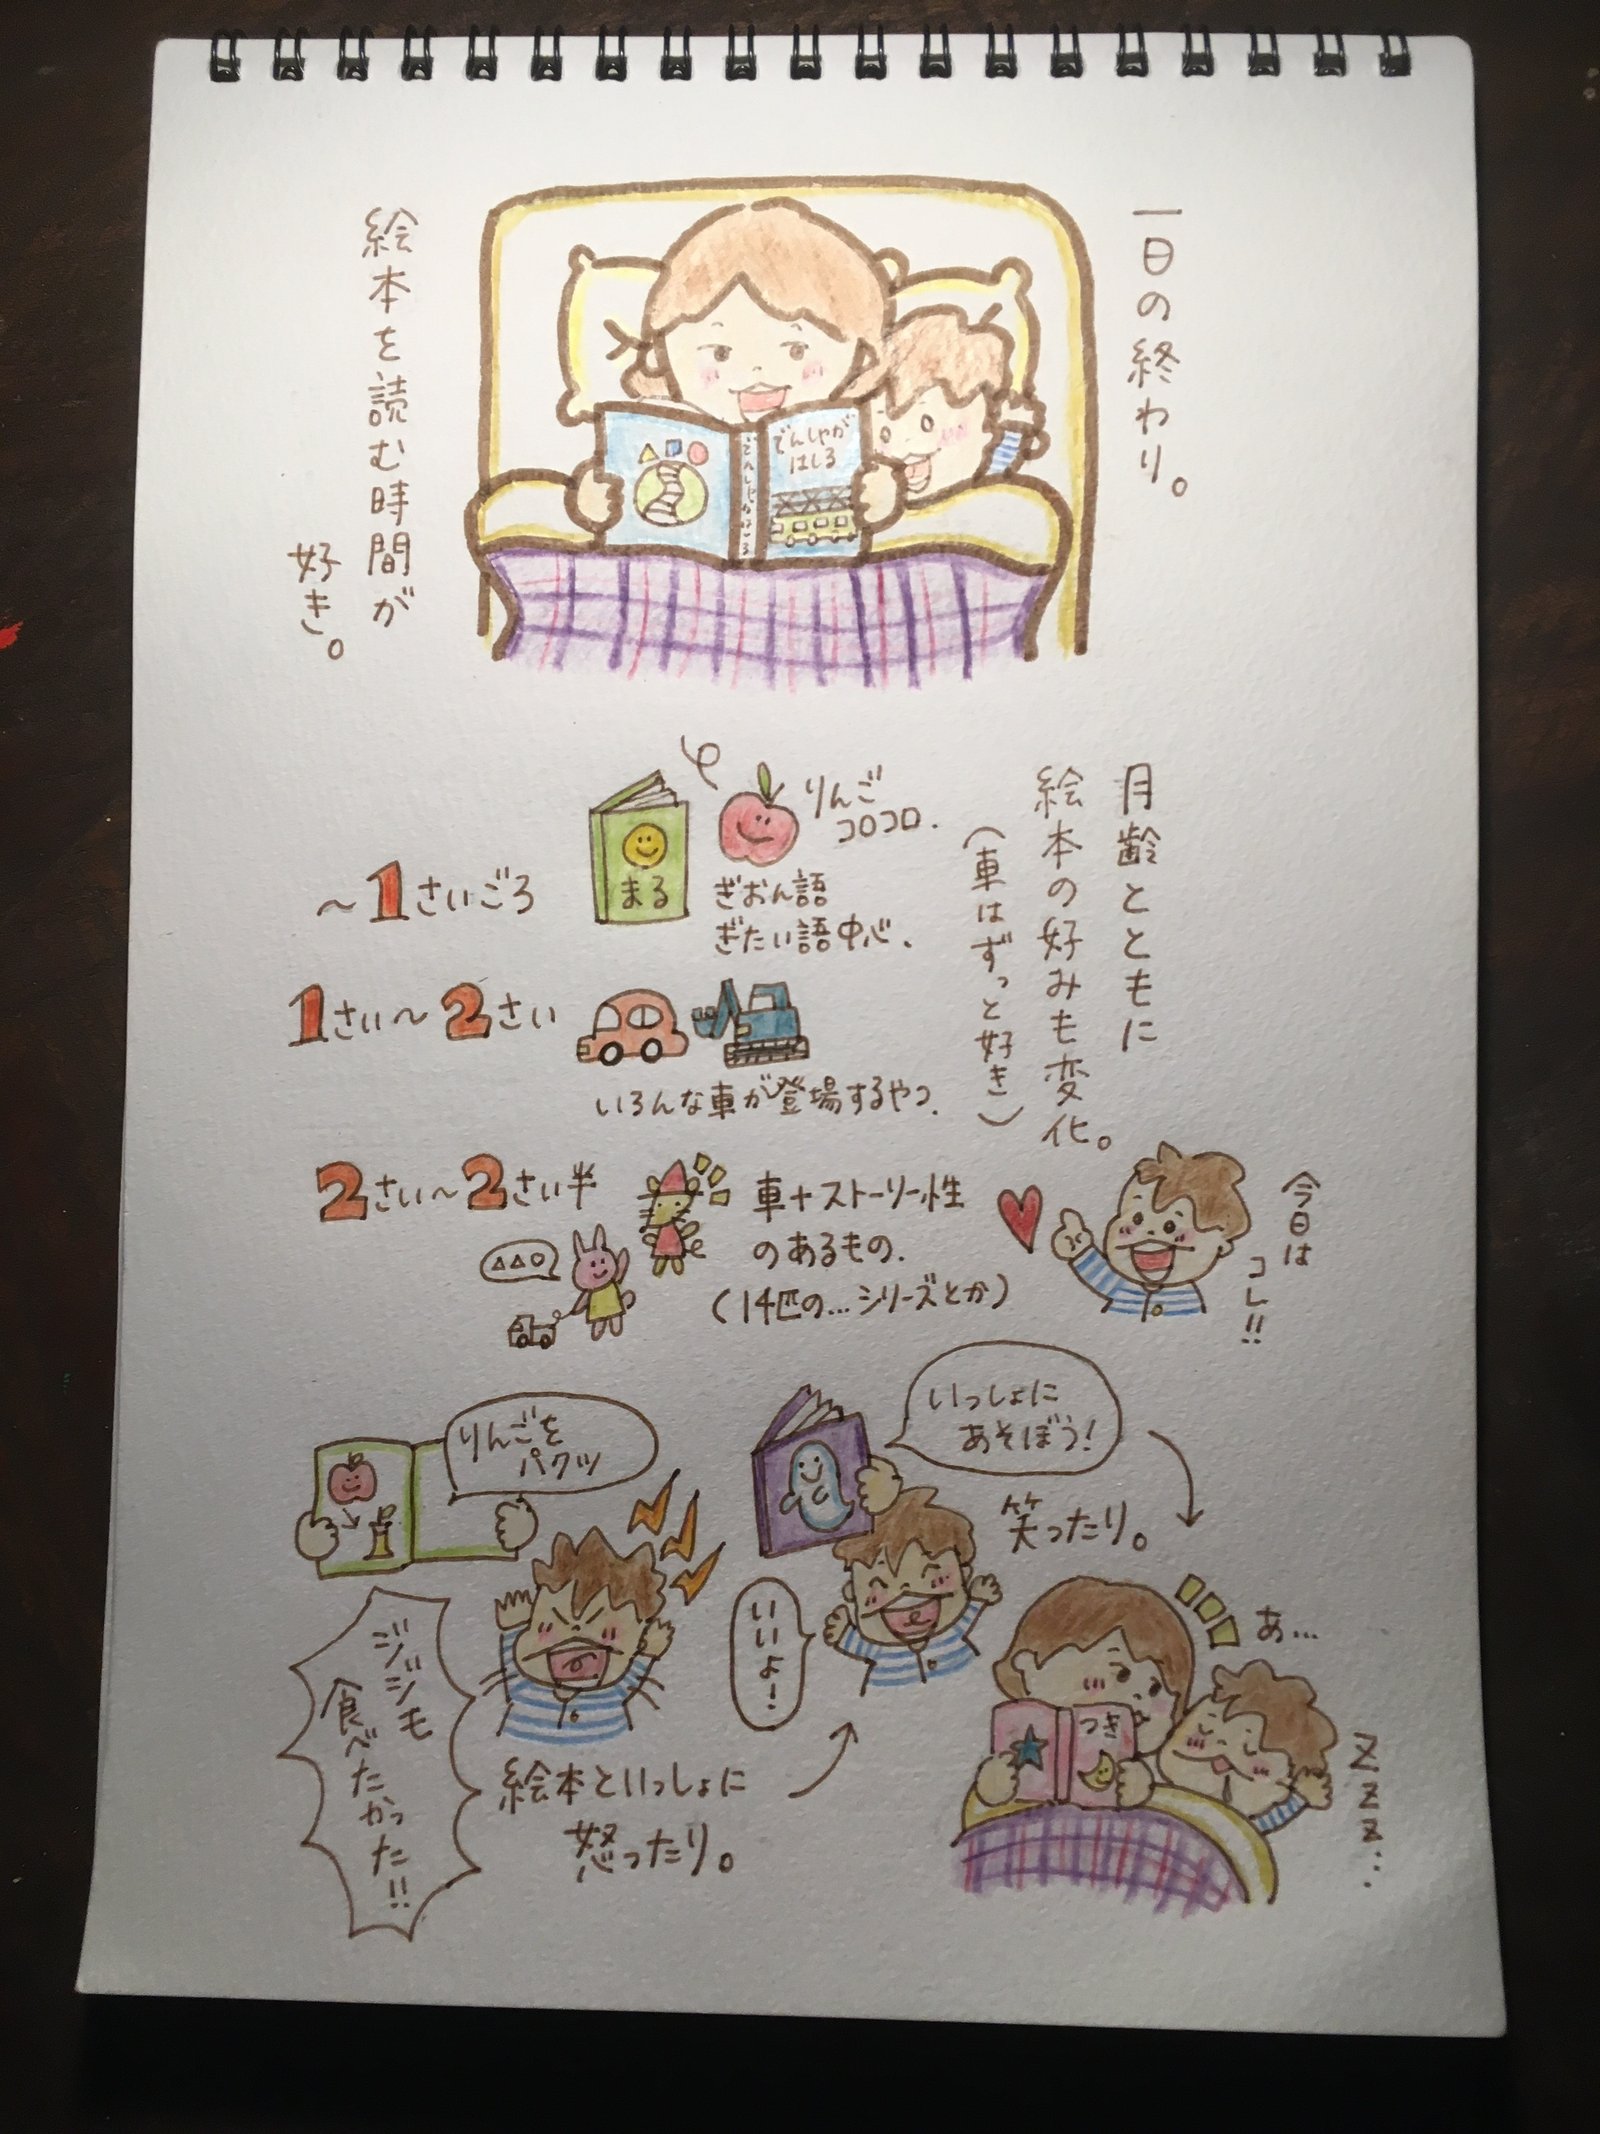 一日の終わり。
絵本を読む時間が
好き。
でんしゃが
はしる
でんしゃがはしる
月齢とともに
絵本の好みも変化。
(車はずっと好き)
りんご
コロコロ.
まる
〜1さいごろ
ぎおん語
ぎたい語中心、
1さい〜2さい
いろんな車が登場するやつ.
2さい〜2さい半
車+ストーリー性
のあるもの.
(14匹の…シリーズとか)
△△○
今日は
コレ!!
りんごを
パクッ
ジジも
食べたかった!!
絵本といっしょに
怒ったり。
いっしょに
あそぼう!
いいよ!
笑ったり。
あ…
つき
ZZZ…